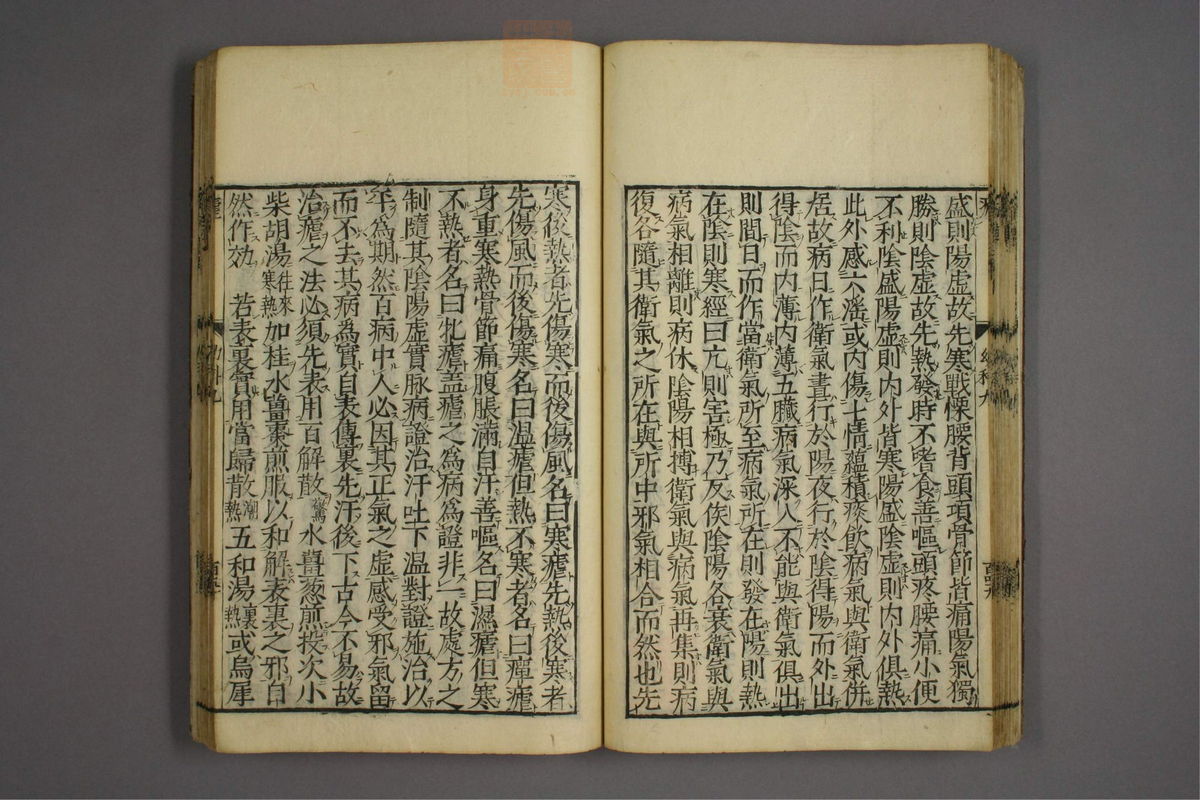 盛則陽虛故先寒戰慄腰背頭項骨節皆痛陽氣獨
勝則陰虛故先熱發時不嗜食善嘔頭疼腰痛小便
不利陰盛陽虛則內外皆寒陽盛陰虛則內外俱熱
此外感六滛或內傷七情蘊積痰飲病氣與衛氣併
居故病日作衛氣晝行於陽夜行於陰得陽而外出
得陰而內薄內薄五臟病氣深人不能與衛氣俱出
則間日而作當衛氣所至病氣所在則發在陽則熱
在陰則寒經曰亢則害極乃反俟陰陽各衰衛氣與
病氣相離則病休陰陽相搏衛氣與病氣再集則病
復各隨其衛氣之所在與所中邪氣相合而然也先
寒後熱者先傷寒而後傷風名曰寒瘧先熱後寒者
先傷風而後傷寒名曰溫瘧但熱不寒者名曰癉瘧
身重寒熱骨節痛腹脹滿自汗善嘔名曰濕瘧但寒
不熱者名曰牝瘧蓋瘧之為病為證非一故處方之
制隨其陰陽虛實脉病證治汗吐下溫對證施治以
平為期然百病中人必因其正氣之虛感受邪氣留
而不去其病為實自表傳裏先汗後下古今不易故
治瘧之法必須先表用百解散驚水薑葱煎投次小
柴胡湯往來寒熱加桂水薑棗煎服以和解表裏之邪自
然作効 若表裏實用當歸散潮熱五和湯裏熱或烏犀